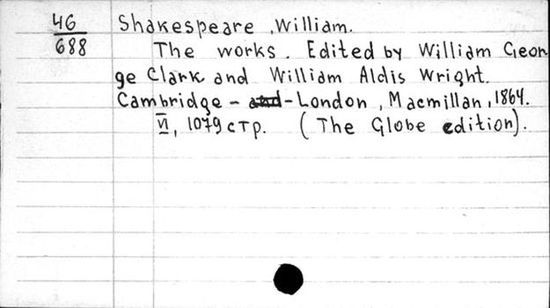 46 Shakespeare, William.
688 The works. Edited by William Geor
ge Clark and William Aldis Wright.
Cambridge - and - London, Macmillan, 1864.
VI, 1079 стр. (The Globe edition).